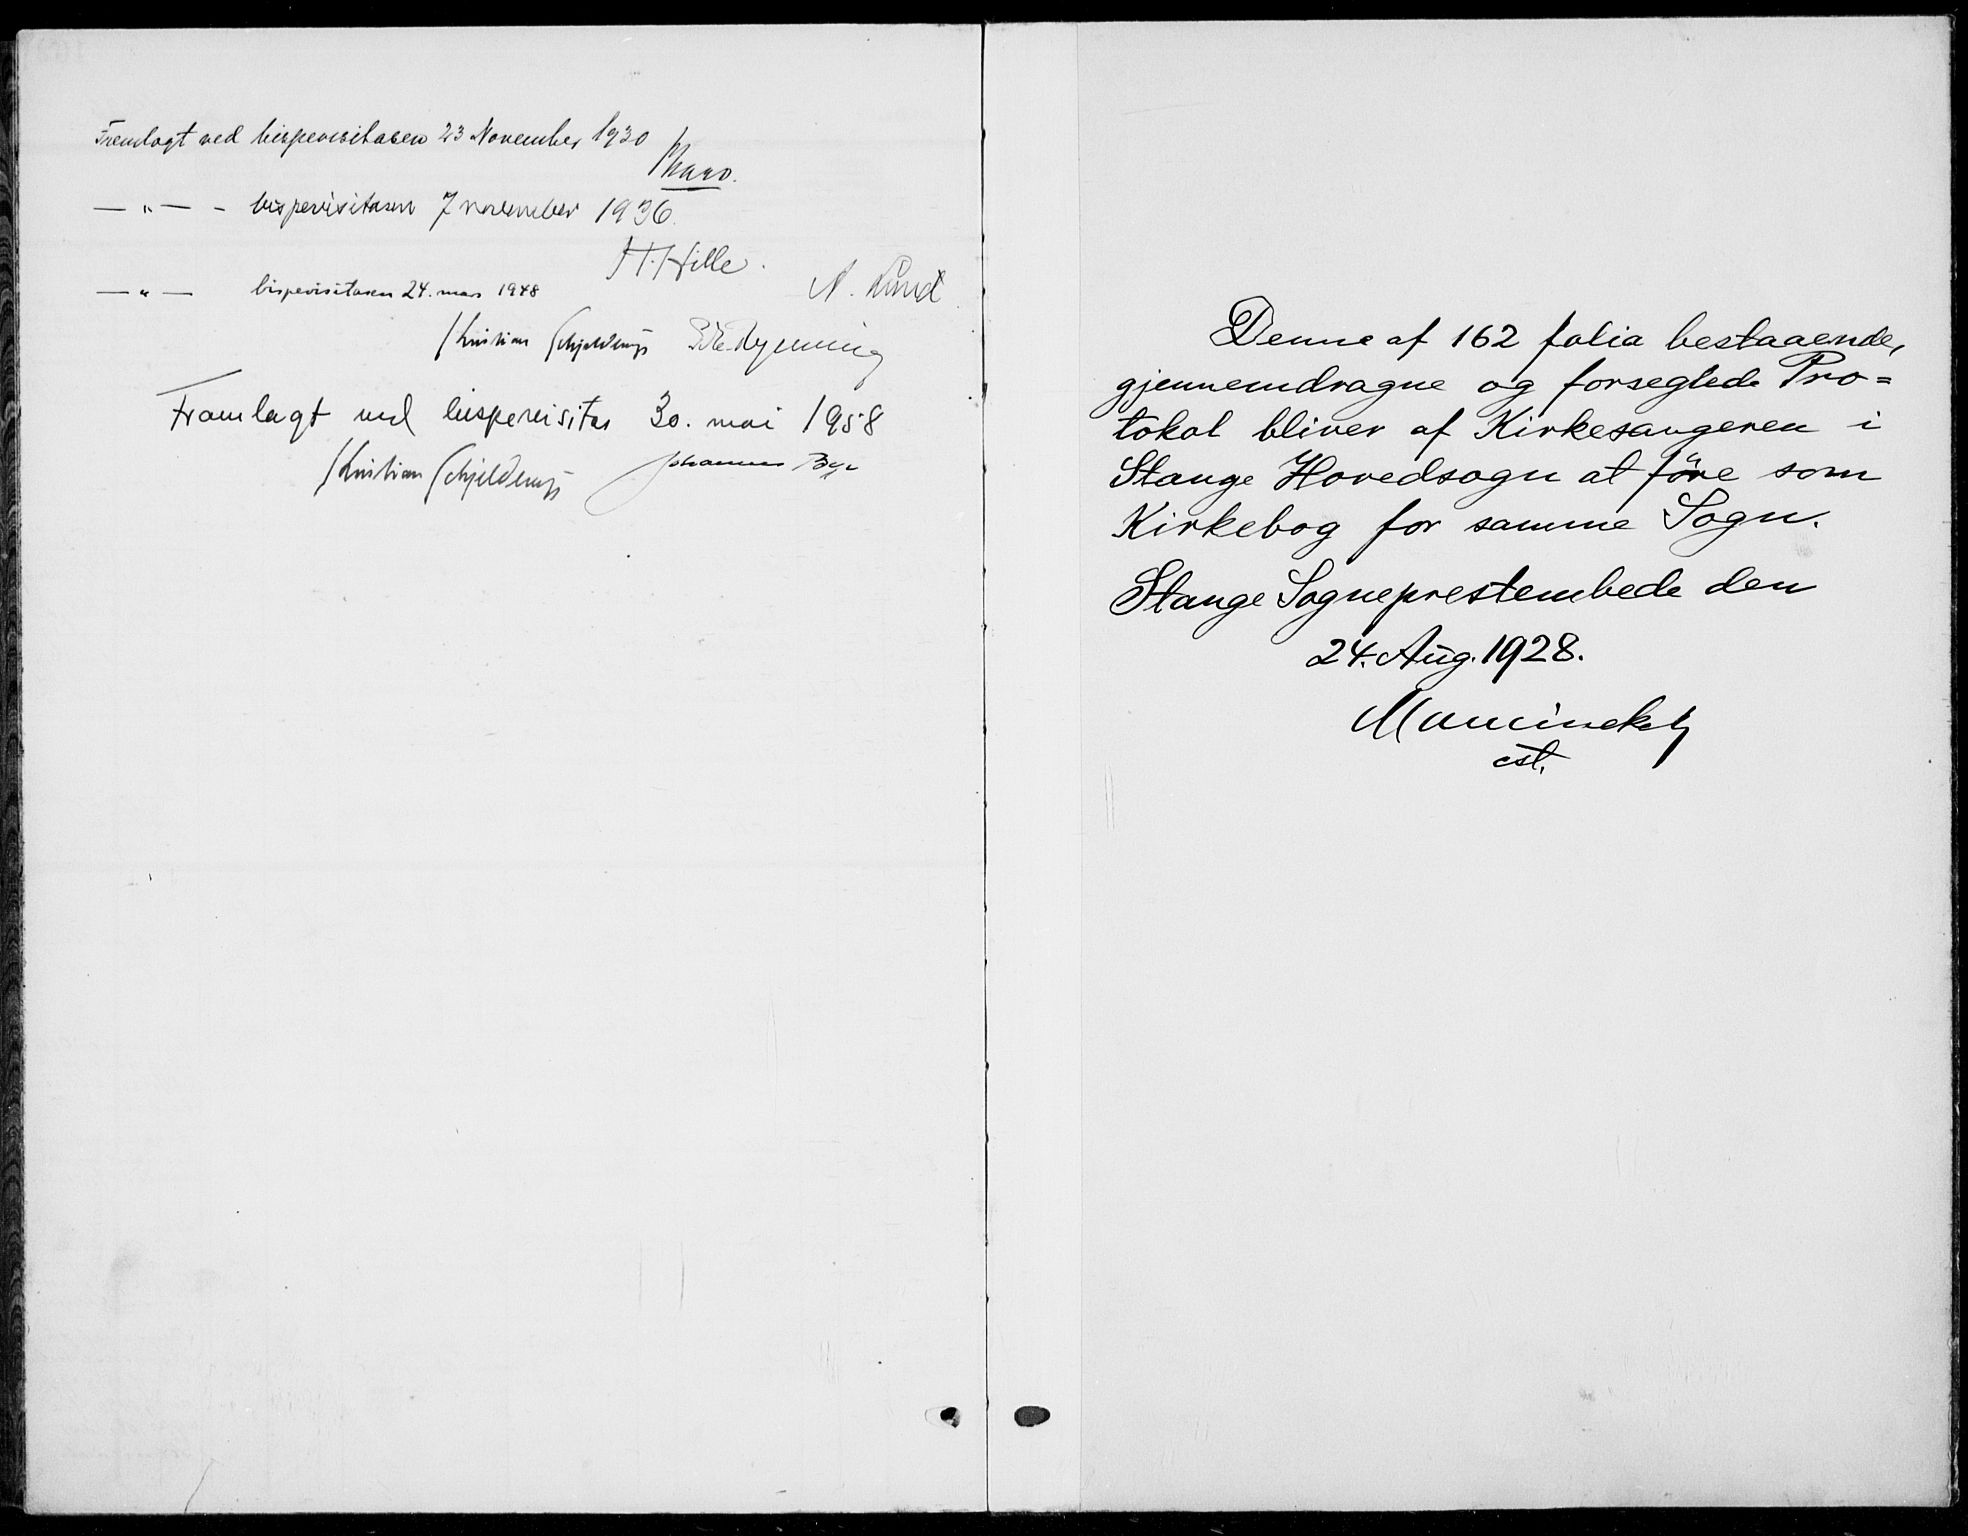 Fremlagt ved bispevisitasen 23 November 1930
— " — - bispevisitasen 7 november 1936.
H. Hille.
— " — bispevisitasen 24. mars 1948
N. Lund
Kristian Schjelderup
Framlagt ved bispevisitas 30. mai 1958
Kristian Schjelderup Johannes Bye
Denne af 162 folia bestaaende,
gjennemdragne og forseglede Pro=
tokol bliver af Kirkesangeren i
Stange Hovedsogn at före som
Kirkebog for samme Sogn.
Stange Sogneprestembede den
24. Aug. 1928.
cst.